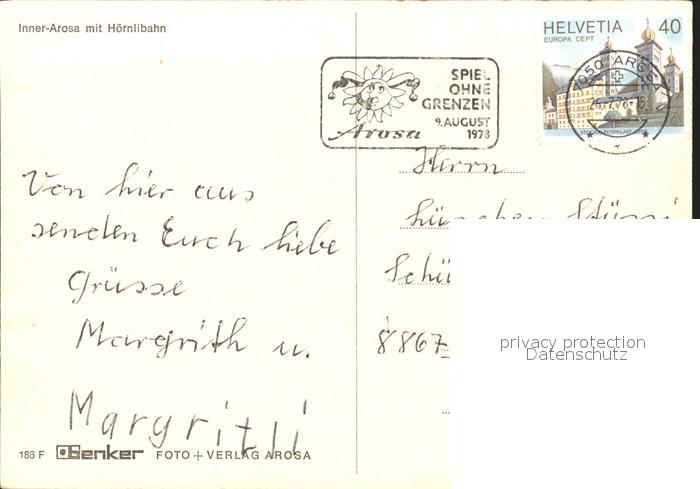 Inner-Arosa mit Hörnlibahn
HELVETIA 40
EUROPA CEPT
7050 AROSA
SPIEL
OHNE
GRENZEN
9. AUGUST
1978
Arosa
Von hier aus
senden Euch liebe
Grüsse
Margrith u.
Margritli
Herrn
8867
privacy protection
Datenschutz
186 F Benker FOTO + VERLAG AROSA